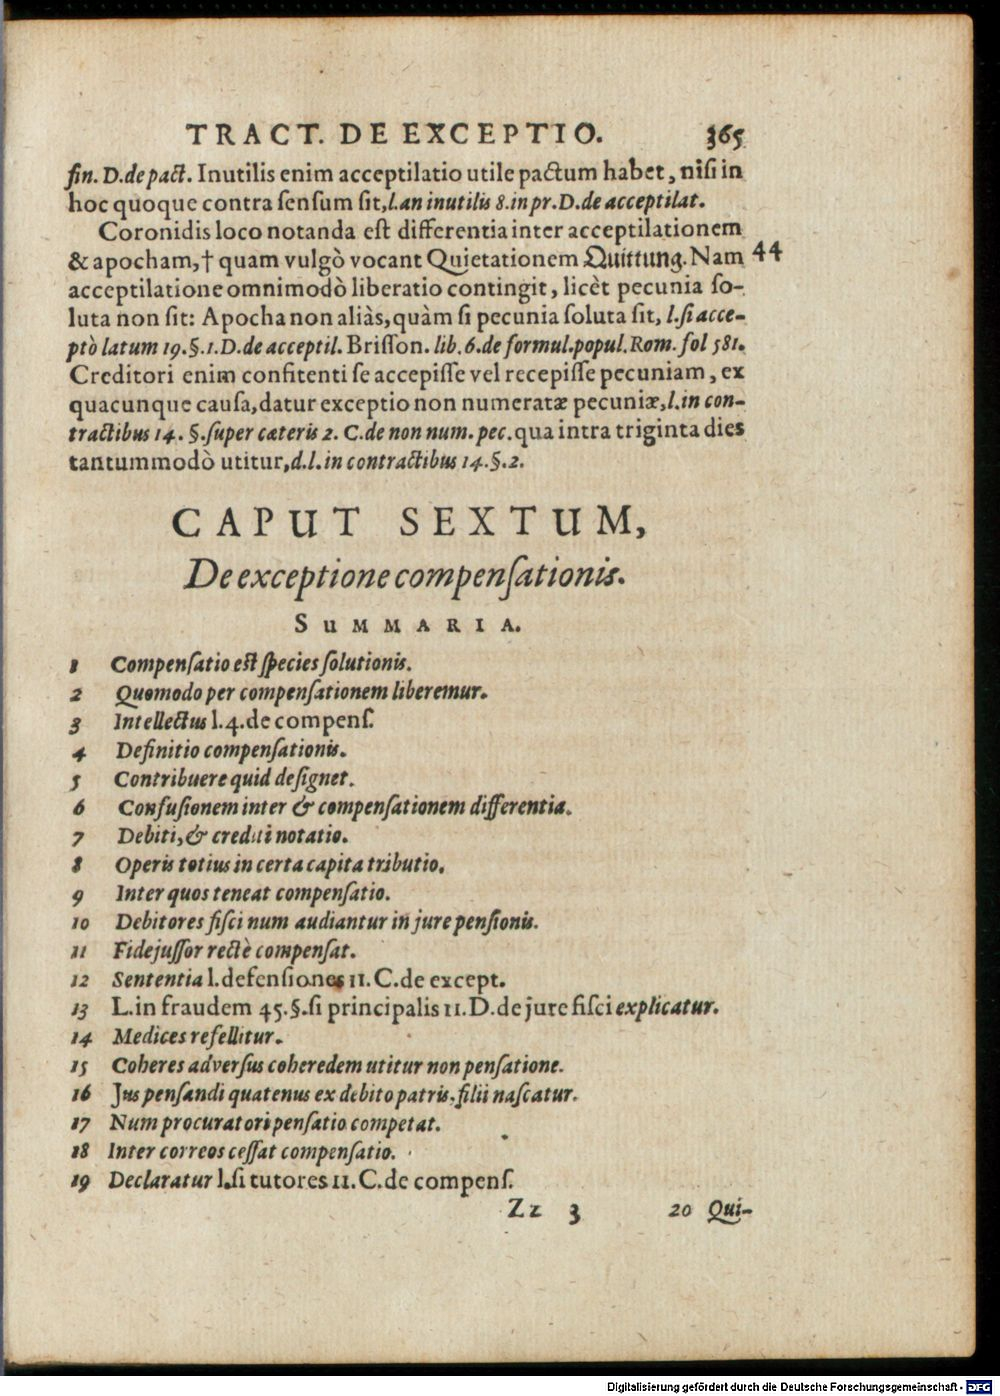 TRACT. DE EXCEPTIO. 365
fin. D. de pact. Inutilis enim acceptilatio utile pactum habet, nisi in
hoc quoque contra sensum sit, l. an inutilis 8. in pr. D. de acceptilat.
Coronidis loco notanda est differentia inter acceptilationem
& apocham, † quam vulgò vocant Quietationem Quittung. Nam 44
acceptilatione omnimodò liberatio contingit, licèt pecunia so-
luta non sit: Apocha non aliàs, quàm si pecunia soluta sit, l. si acce-
ptò latum 19. §. 1. D. de acceptil. Brisson. lib. 6. de formul. popul. Rom. fol 581.
Creditori enim confitenti se accepisse vel recepisse pecuniam, ex
quacunque causa, datur exceptio non numeratæ pecuniæ, l. in con-
tractibus 14. §. super cæteris 2. C. de non num. pec. qua intra triginta dies
tantummodò utitur, d. l. in contractibus 14. §. 2.
CAPUT SEXTUM,
De exceptione compensationis.
SUMMARIA.
1 Compensatio est species solutionis.
2 Quomodo per compensationem liberemur.
3 Intellectus l. 4. de compens.
4 Definitio compensationis.
5 Contribuere quid designet.
6 Confusionem inter & compensationem differentia.
7 Debiti, & crediti notatio.
8 Operis totius in certa capita tributio.
9 Inter quos teneat compensatio.
10 Debitores fisci num audiantur in jure pensionis.
11 Fidejussor rectè compensat.
12 Sententia l. defensiones 11. C. de except.
13 L. in fraudem 45. §. si principalis 11. D. de jure fisci explicatur.
14 Medices refellitur.
15 Coheres adversus coheredem utitur non pensatione.
16 Jus pensandi quatenus ex debito patris, filii nascatur.
17 Num procuratori pensatio competat.
18 Inter correos cessat compensatio.
19 Declaratur l. si tutores 11. C. de compens.
Zz 3 20 Qui-
Digitalisierung gefördert durch die Deutsche Forschungsgemeinschaft - DFG